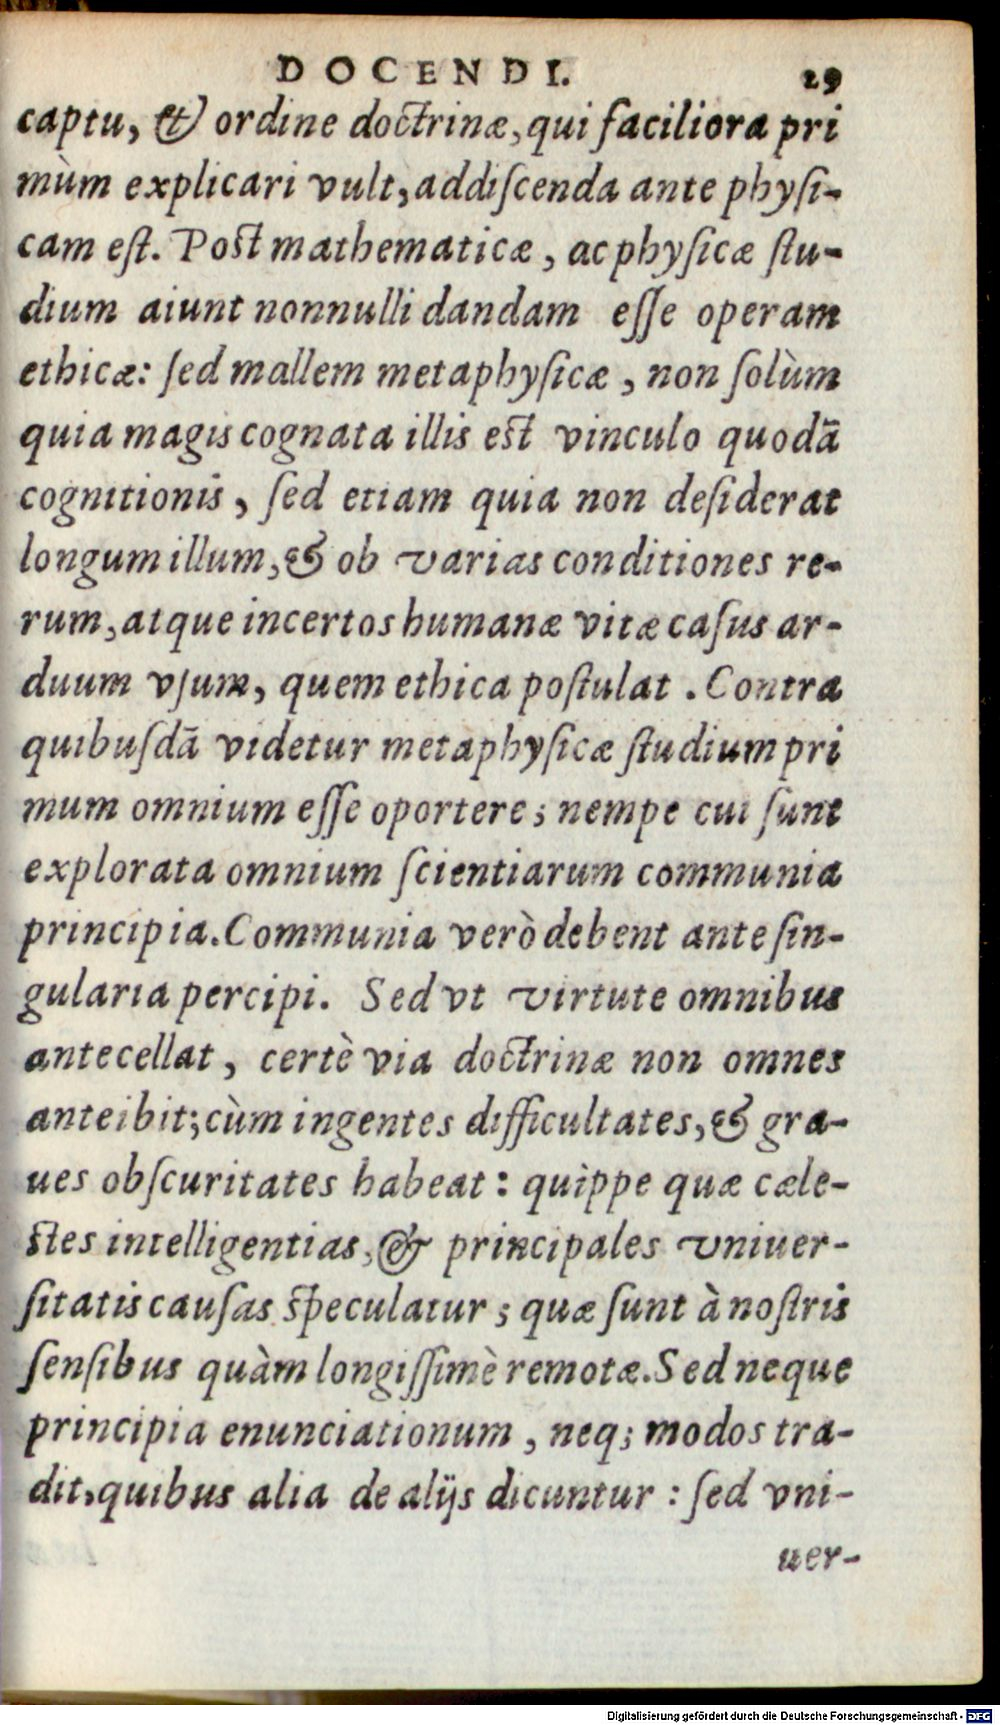 DOCENDI. 29
captu, & ordine doctrinæ, qui faciliora pri
mùm explicari vult, addiſcenda ante phyſi-
cam eſt. Poſt mathematicæ, ac phyſicæ ſtu-
dium aiunt nonnulli dandam eſſe operam
ethicæ: ſed mallem metaphyſicæ, non ſolùm
quia magis cognata illis eſt vinculo quodā
cognitionis, ſed etiam quia non deſiderat
longum illum, & ob varias conditiones re-
rum, atque incertos humanæ vitæ caſus ar-
duum vſum, quem ethica poſtulat. Contra
quibuſdā videtur metaphyſicæ ſtudium pri
mum omnium eſſe oportere; nempe cui ſunt
explorata omnium ſcientiarum communia
principia. Communia verò debent ante ſin-
gularia percipi. Sed vt virtute omnibus
antecellat, certè via doctrinæ non omnes
anteibit; cùm ingentes difficultates, & gra-
ues obſcuritates habeat: quippe quæ cæle-
ſtes intelligentias, & principales vniuer-
ſitatis cauſas ſpeculatur; quæ ſunt à noſtris
ſenſibus quàm longiſſimè remotæ. Sed neque
principia enunciationum, neq; modos tra-
dit, quibus alia de alijs dicuntur: ſed vni-
uer-
Digitalisierung gefördert durch die Deutsche Forschungsgemeinschaft - DFG